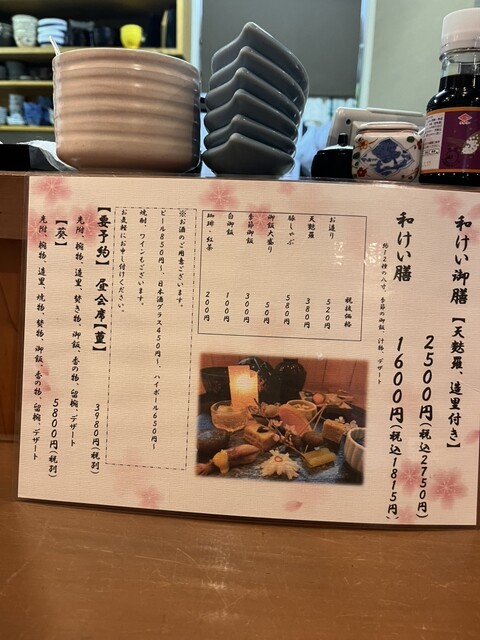 和けい御膳【天麩羅、造里付き】
2500円(税込2750円)
和けい膳 1600円(税込1815円)
約12種の八寸、季節の御飯、汁物、デザート
税抜価格
お造り 520円
天麩羅 380円
豚しゃぶ 580円
御飯大盛り 50円
季節御飯 300円
白御飯 100円
珈琲・紅茶 200円
※お酒のご用意ございます。
ビール850円〜、日本酒グラス450円〜、ハイボール650円〜
焼酎、ワインもございます。
お気軽にお申し付けください。
【要予約】昼会席【菫】 3980円(税別)
先附、椀物、造里、焚き物、御飯、香の物、留椀、デザート
【葵】 5800円(税別)
先附、椀物、造里、焼物、焚物、御飯、香の物、留椀、デザート